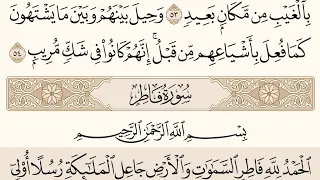 بِٱلْغَيْبِ مِن مَّكَانٍۭ بَعِيدٍ ٥٣ وَحِيلَ بَيْنَهُمْ وَبَيْنَ مَا يَشْتَهُونَ
كَمَا فُعِلَ بِأَشْيَاعِهِم مِّن قَبْلُ ۚ إِنَّهُمْ كَانُوا۟ فِى شَكٍّ مُّرِيبٍۭ ٥٤
سُورَةُ فَاطِرٍ
بِسْمِ ٱللَّهِ ٱلرَّحْمَٰنِ ٱلرَّحِيمِ
ٱلْحَمْدُ لِلَّهِ فَاطِرِ ٱلسَّمَٰوَٰتِ وَٱلْأَرْضِ جَاعِلِ ٱلْمَلَٰٓئِكَةِ رُسُلًا أُو۟لِىٓ